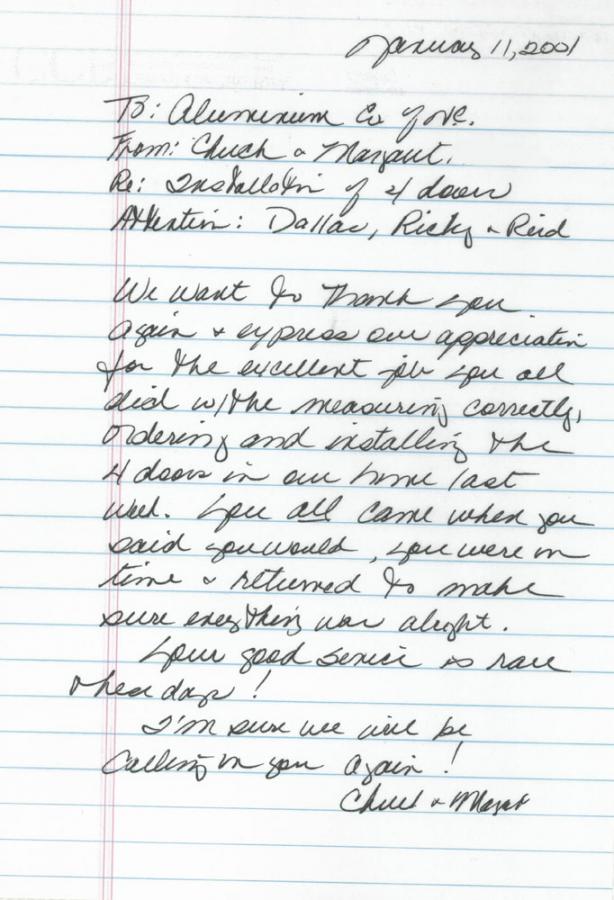 January 11, 2001
To: Aluminium Co of NC.
From: Chuck & Margaret.
Re: Installation of 4 doors
Attention: Dallas, Ricky & Reid
We want to thank you
again & express our appreciation
for the excellent job you all
did w/the measuring correctly,
ordering and installing the
4 doors in our home last
week. You all came when you
said you would, you were on
time & returned to make
sure everything was alright.
Your good service is rare
these days!
I'm sure we will be
calling on you again!
Chuck & Margaret